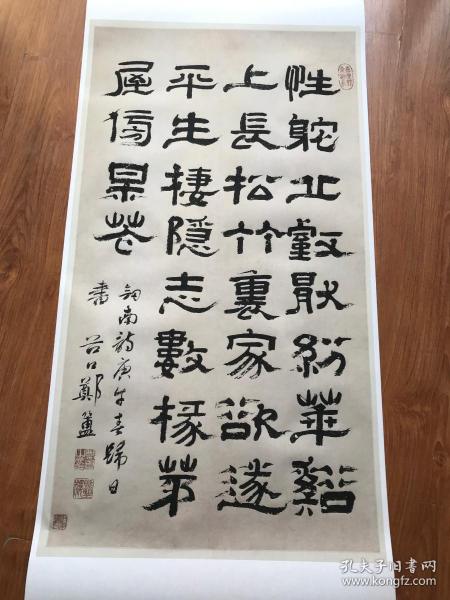 性躭丘壑厭紛華谿
上長松竹裏家欲遂
平生棲隱志數椽茅
屋傍某花
南詩庚午春歸日
書 谷口鄭簠
孔夫子旧书网
www.kongfz.com